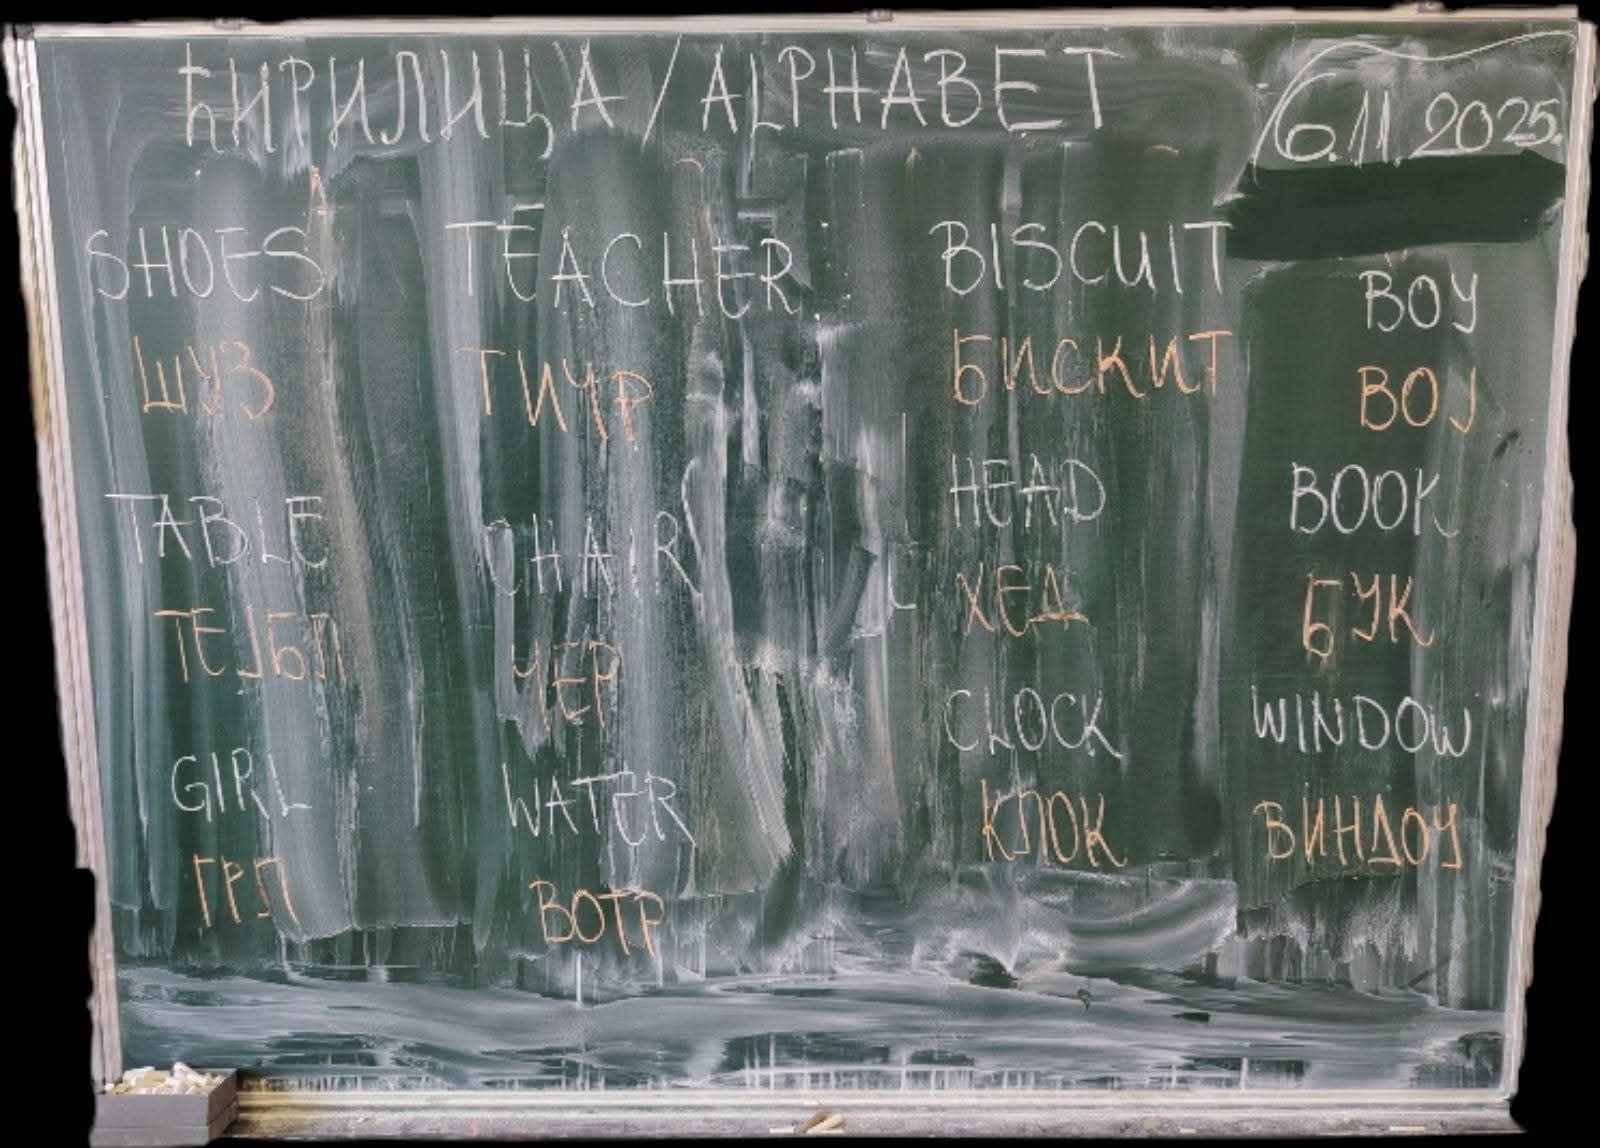 ЋИРИЛИЦА / ALPHABET
6.11.2025.
SHOES
ШУЗ
TABLE
ТЕЈБЛ
GIRL
ГРЛ
TEACHER
ТИЧР
CHAIR
ЧЕР
WATER
ВОТР
BISCUIT
БИСКИТ
HEAD
ХЕД
CLOCK
КЛОК
BOY
BOJ
BOOK
БУК
WINDOW
ВИНДОУ